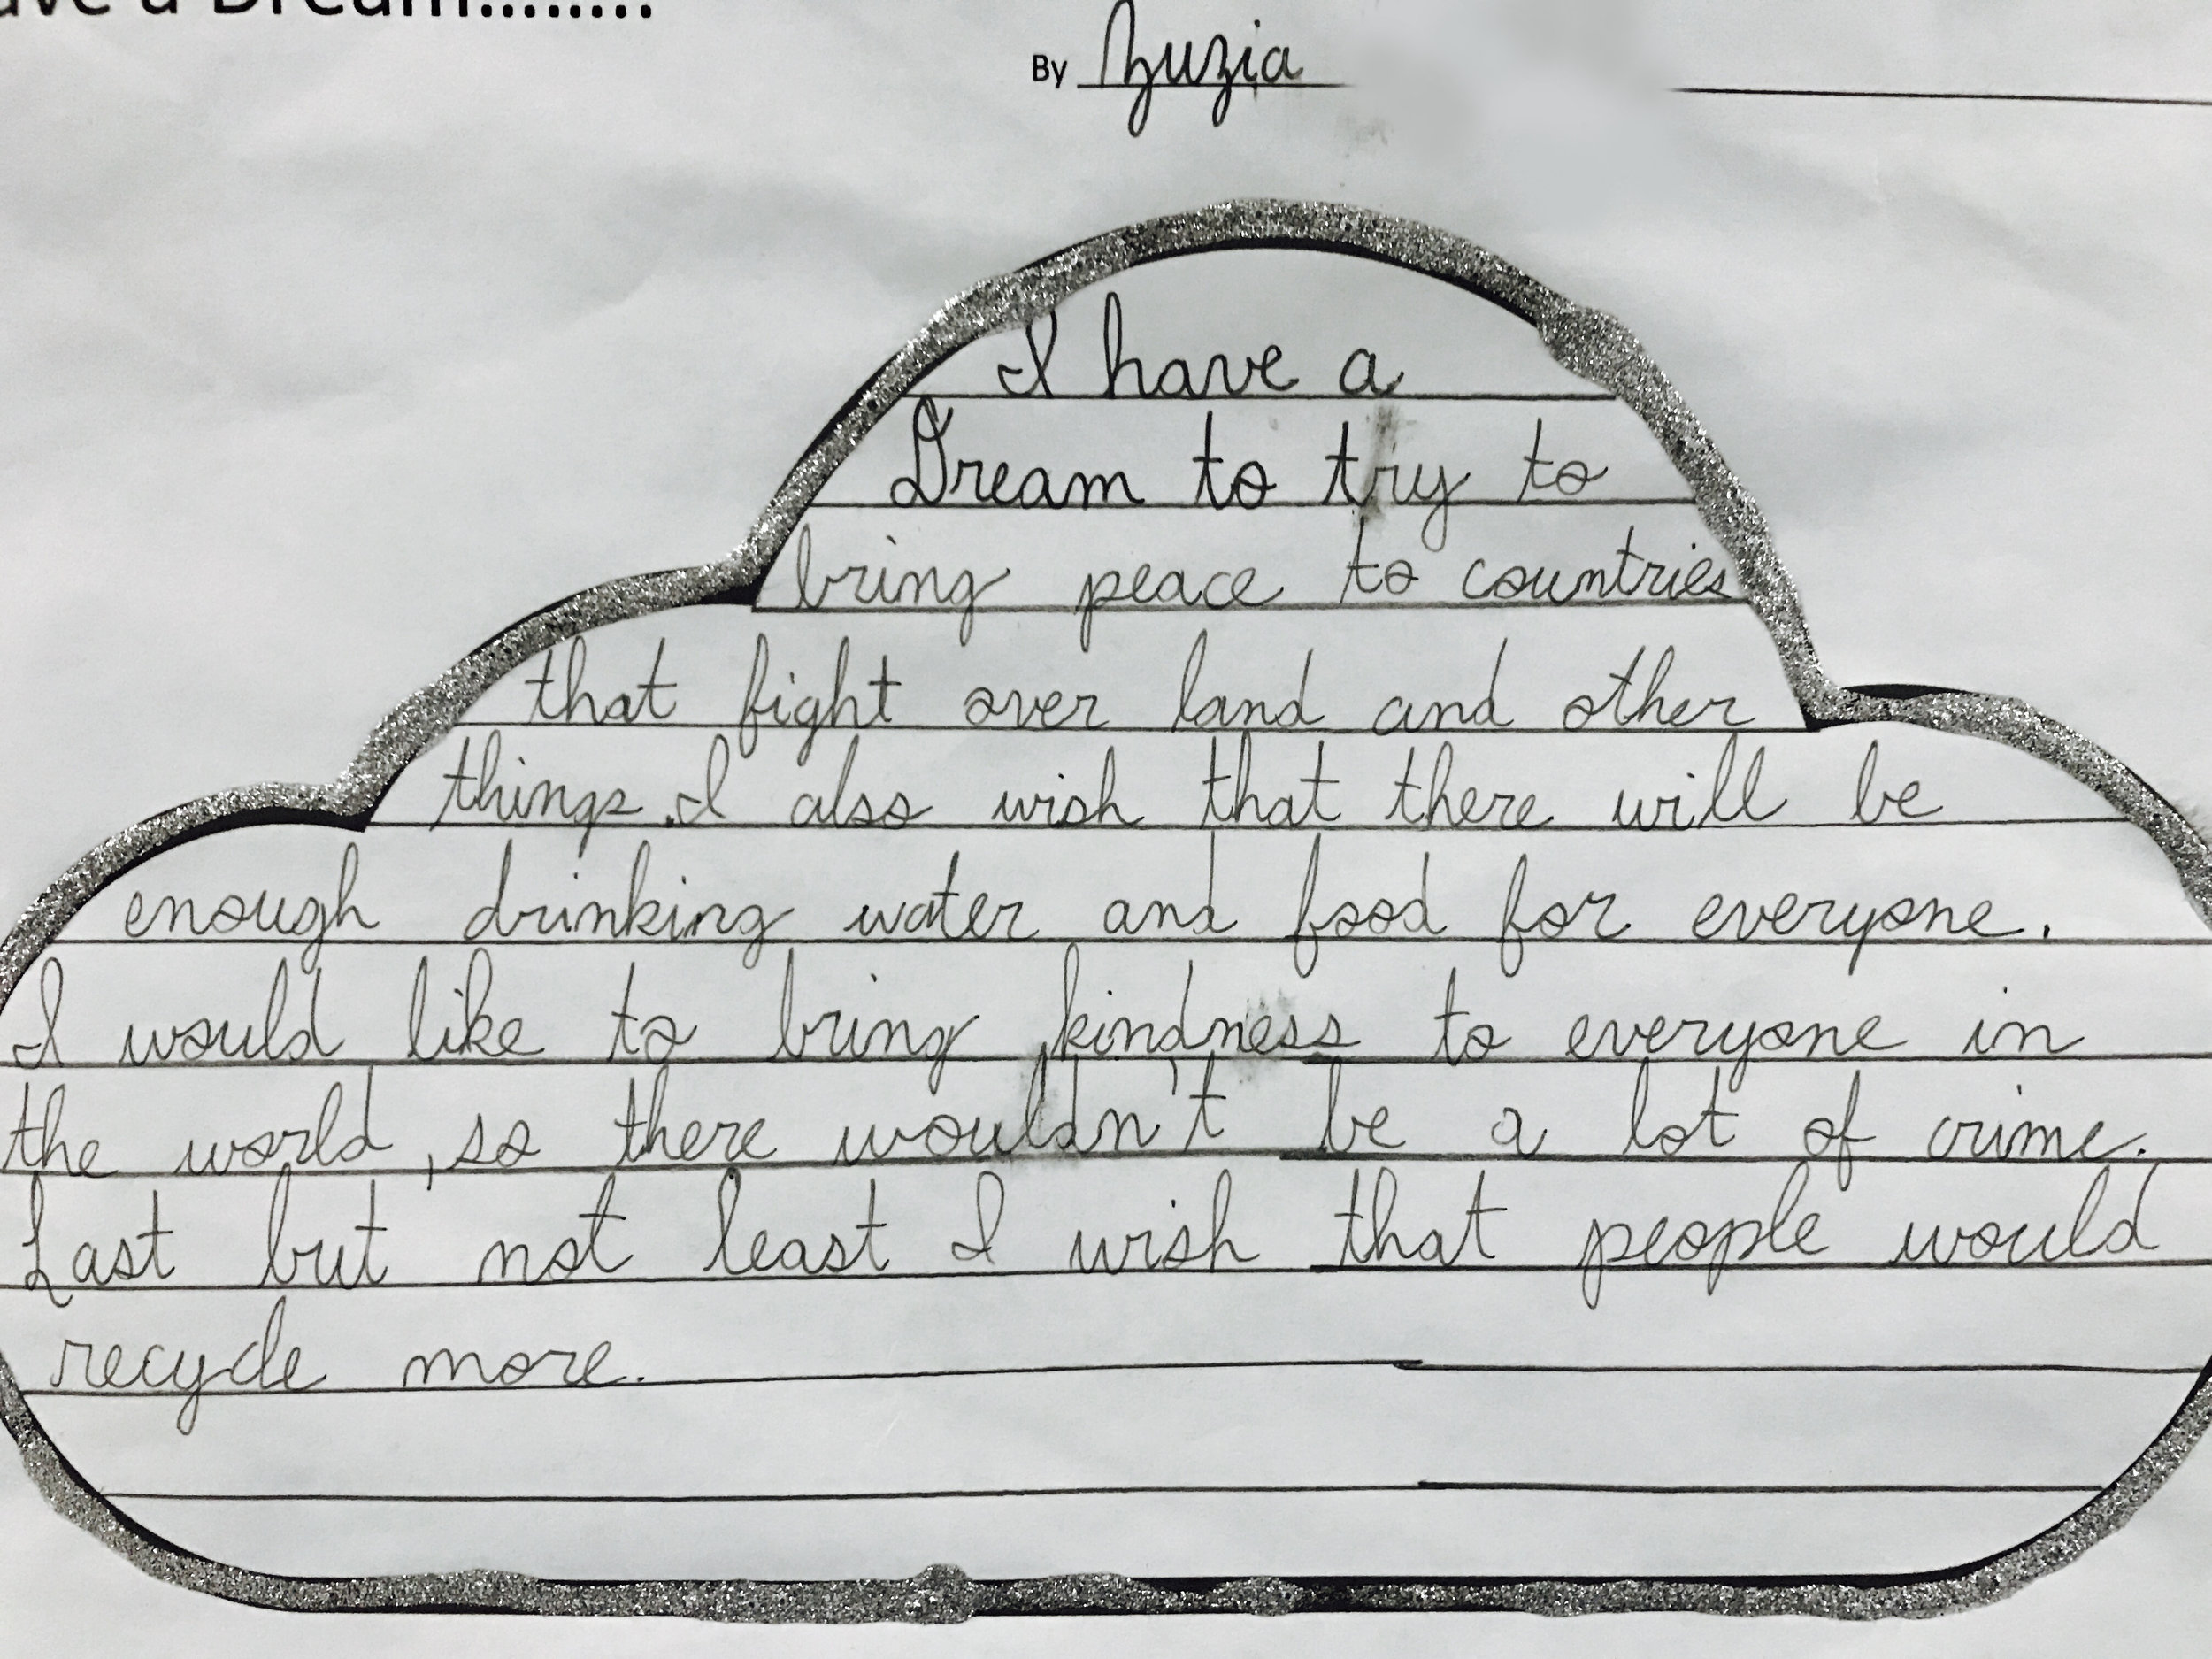 ave a Dream........
By Zuzia
I have a
Dream to try to
bring peace to countries
that fight over land and other
things. I also wish that there will be
enough drinking water and food for everyone.
I would like to bring kindness to everyone in
the world, so there wouldn't be a lot of crime.
Last but not least I wish that people would
recycle more.